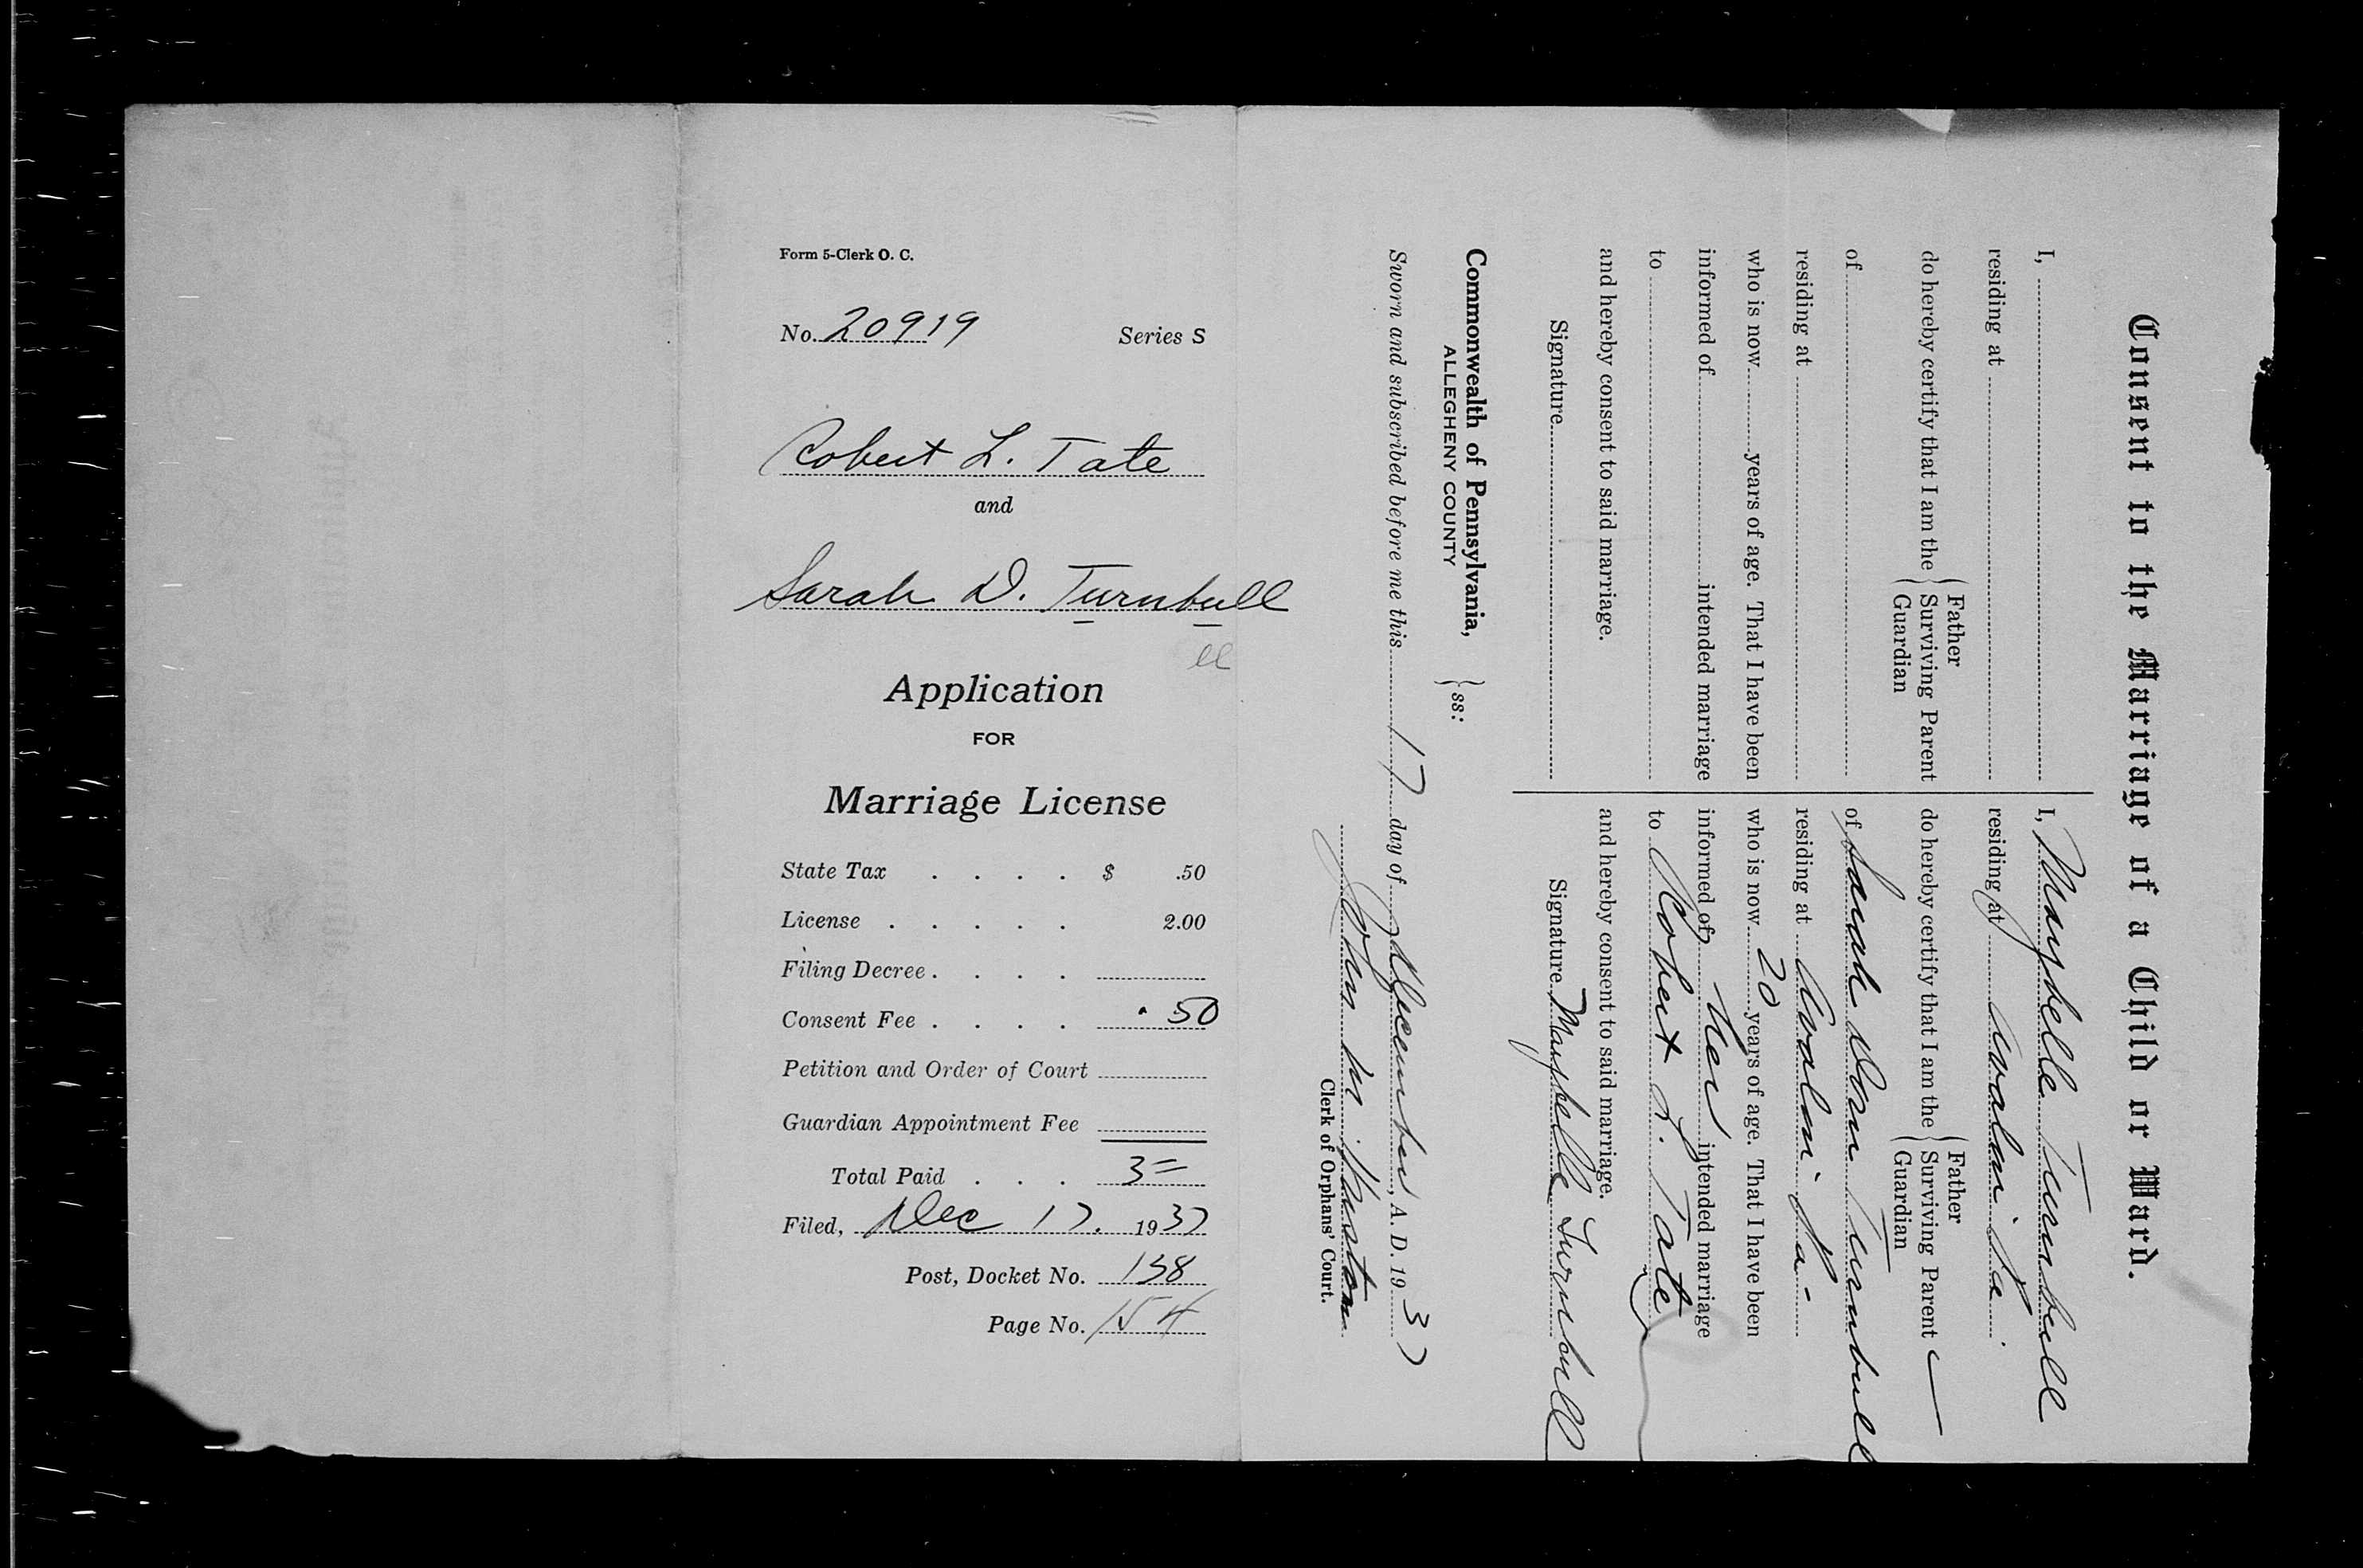 Form 5-Clerk O. C.
No. 20919 Series S
Robert L. Tate
and
Sarah D. Turnbull
ll
Application
FOR
Marriage License
State Tax . . . . $ .50
License . . . . . 2.00
Filing Decree . . . .
Consent Fee . . . . .50
Petition and Order of Court
Guardian Appointment Fee
Total Paid . . . 3=
Filed, Dec 17. 1937
Post, Docket No. 138
Page No. 154
Consent to the Marriage of a Child or Ward.
I,
residing at
do hereby certify that I am the { Father
Surviving Parent
Guardian
of
residing at
who is now years of age. That I have been
informed of intended marriage
to
and hereby consent to said marriage.
Signature
I, Maybelle Turnbull
residing at Avalon Pa.
do hereby certify that I am the { Father
Surviving Parent
Guardian
of Sarah Dorn Turnbull
residing at Avalon Pa-
who is now 20 years of age. That I have been
informed of her intended marriage
to Robert L. Tate
and hereby consent to said marriage.
Signature Maybelle Turnbull
Commonwealth of Pennsylvania,
ALLEGHENY COUNTY } ss:
Sworn and subscribed before me this 17 day of December, A. D. 1937
John M. Huston
Clerk of Orphans' Court.